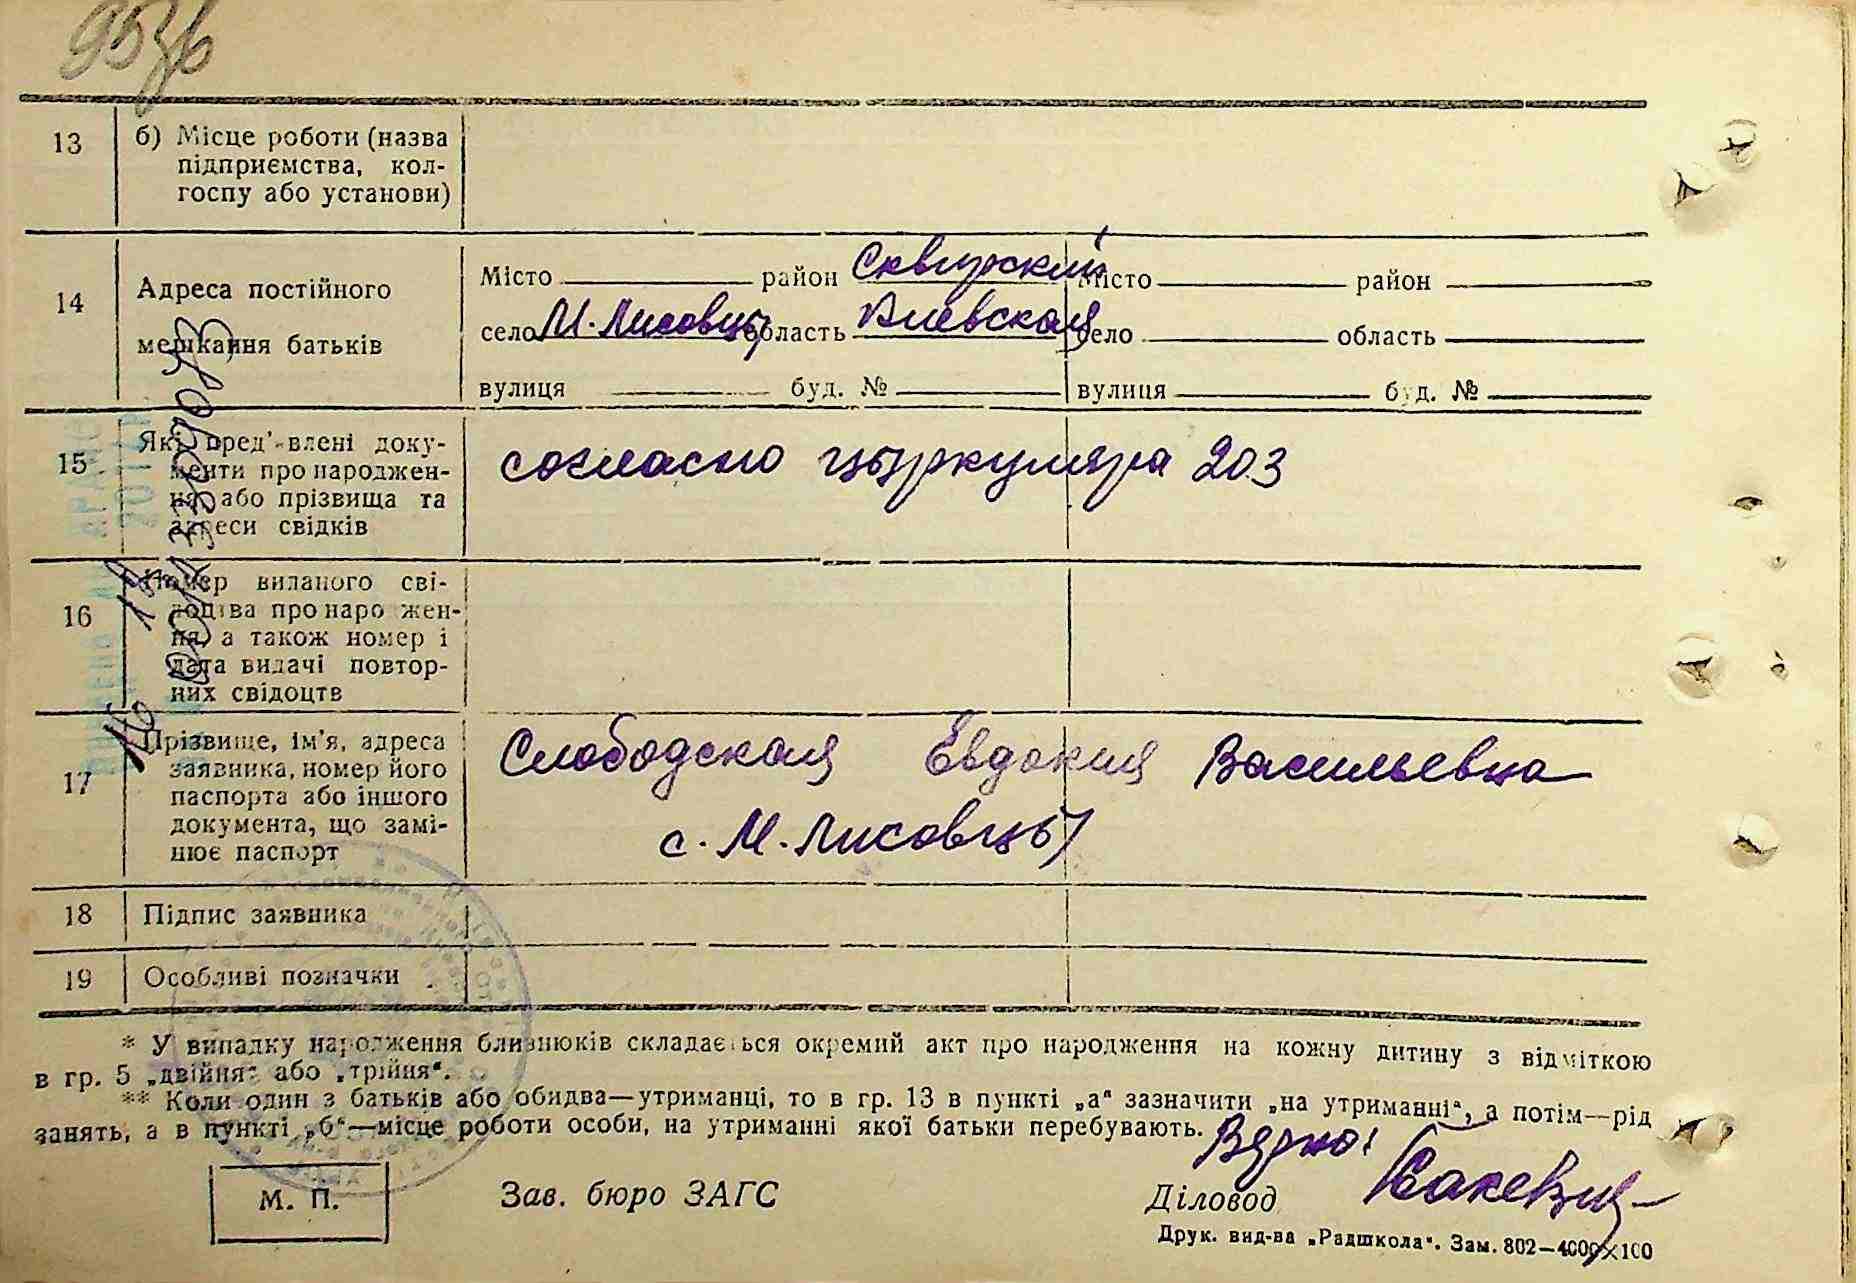 13 б) Місце роботи (назва
підприємства, кол-
госпу або установи)
14 Адреса постійного
мешкання батьків
Місто район Сквирский Місто район
село М. Лисовцы область Киевская село область
вулиця буд. № вулиця буд. №
15 Які пред'влені доку-
менти про народжен-
ня або прізвища та
адреси свідків
согласно цыркуляра 203
16 Номер виданого сві-
доцтва про народжен-
ня, а також номер і
дата видачі повтор-
них свідоцтв
17 Прізвище, ім'я, адреса
заявника, номер його
паспорта або іншого
документа, що замі-
нює паспорт
Слободская Евдокия Васильевна
с. М. Лисовцы
18 Підпис заявника
19 Особливі позначки
* У випадку народження близнюків складається окремий акт про народження на кожну дитину з відміткою
в гр. 5 „двійня“ або „трійня“.
** Коли один з батьків або обидва—утриманці, то в гр. 13 в пункті „а“ зазначити „на утриманні“, а потім—рід
занять, а в пункті „б“—місце роботи особи, на утриманні якої батьки перебувають.
М. П. Зав. бюро ЗАГС Діловод
Друк. вид-ва „Радшкола“. Зам. 802—4000×100